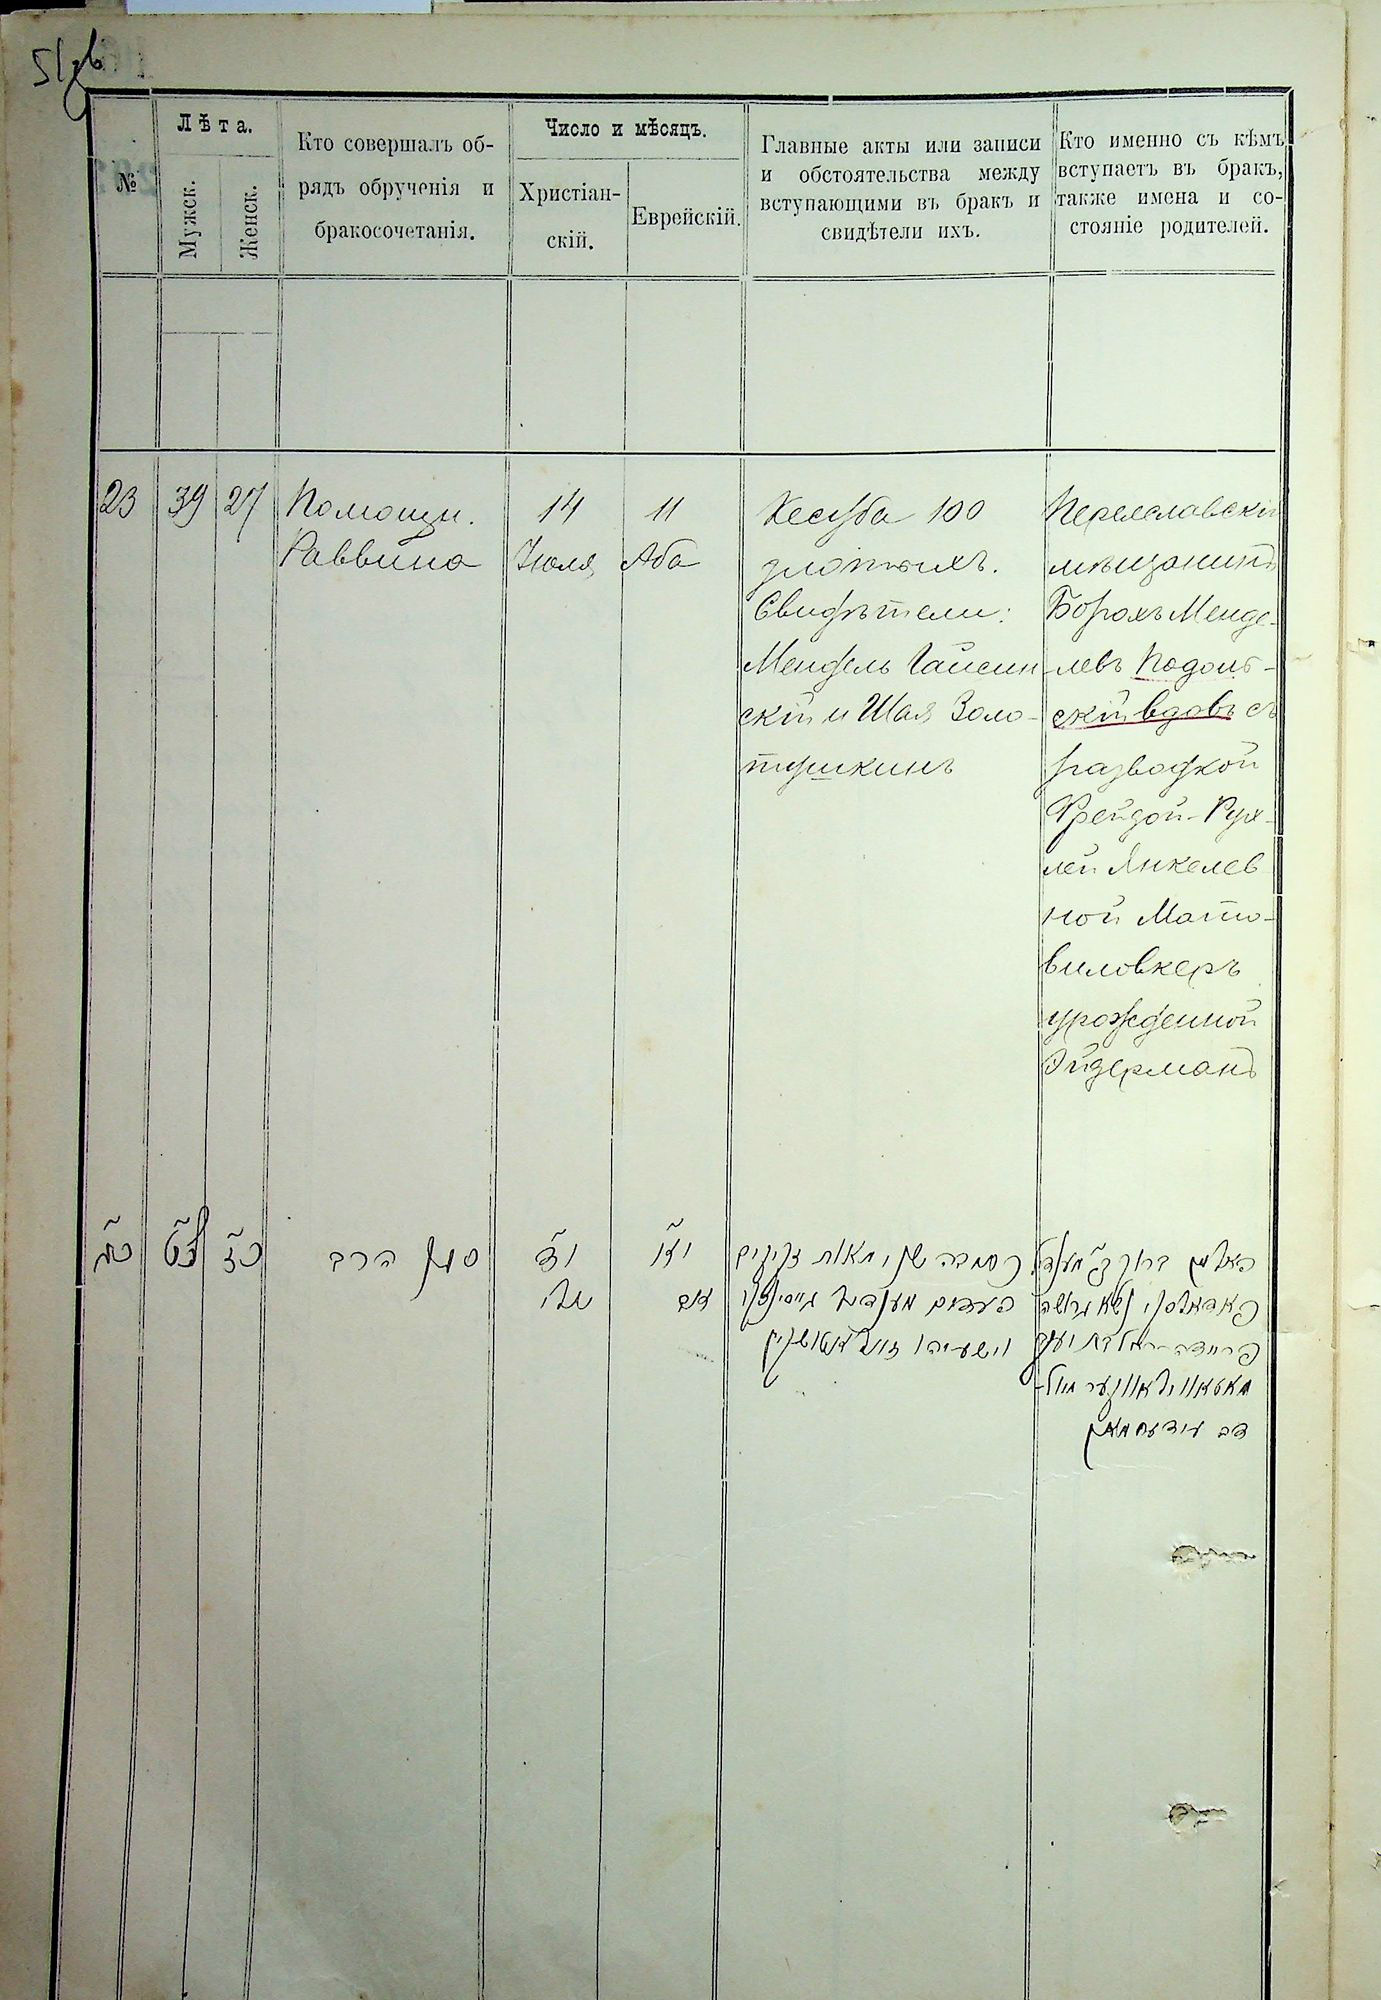 №
Лѣта.
Мужск.
Женск.
Кто совершалъ об-
рядъ обрученія и
бракосочетанія.
Число и мѣсяцъ.
Христіан-
скій.
Еврейскій.
Главные акты или записи
и обстоятельства между
вступающими въ бракъ и
свидѣтели ихъ.
Кто именно съ кѣмъ
вступаетъ въ бракъ,
также имена и со-
стояніе родителей.
23
39
27
Помощн.
Раввина
14
Июля
11
Аба
Кесуба 100
злотыхъ.
Свидѣтели:
Мендель Гайсин
скій и Шая Золо-
тушкинъ
Переяславскій
мѣщанинъ
Борохъ Менде-
левъ Подоль-
скій вдовъ съ
разводкой
Фрейдой-Рух-
лей Янкелев
ной Мато-
виловкеръ
урожденной
Эйдерманъ
כג
לט
כז
סגן הרב
יד
יולי
יא
אב
האלמן ברוך ב״ר מענדל
פאדאלסקי נשא גרושה